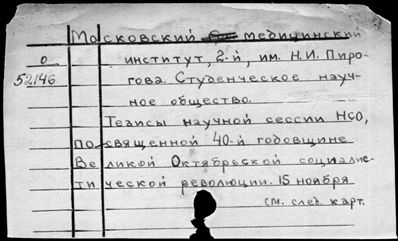 Московский медицинский
институт, 2-й, им. Н.И. Пиро-
гова. Студенческое науч-
ное общество.
Тезисы научной сессии НСО,
посвященной 40-й годовщине
Великой Октябрьской социалис-
тической революции. 15 ноября
см. след. карт.
0
52146